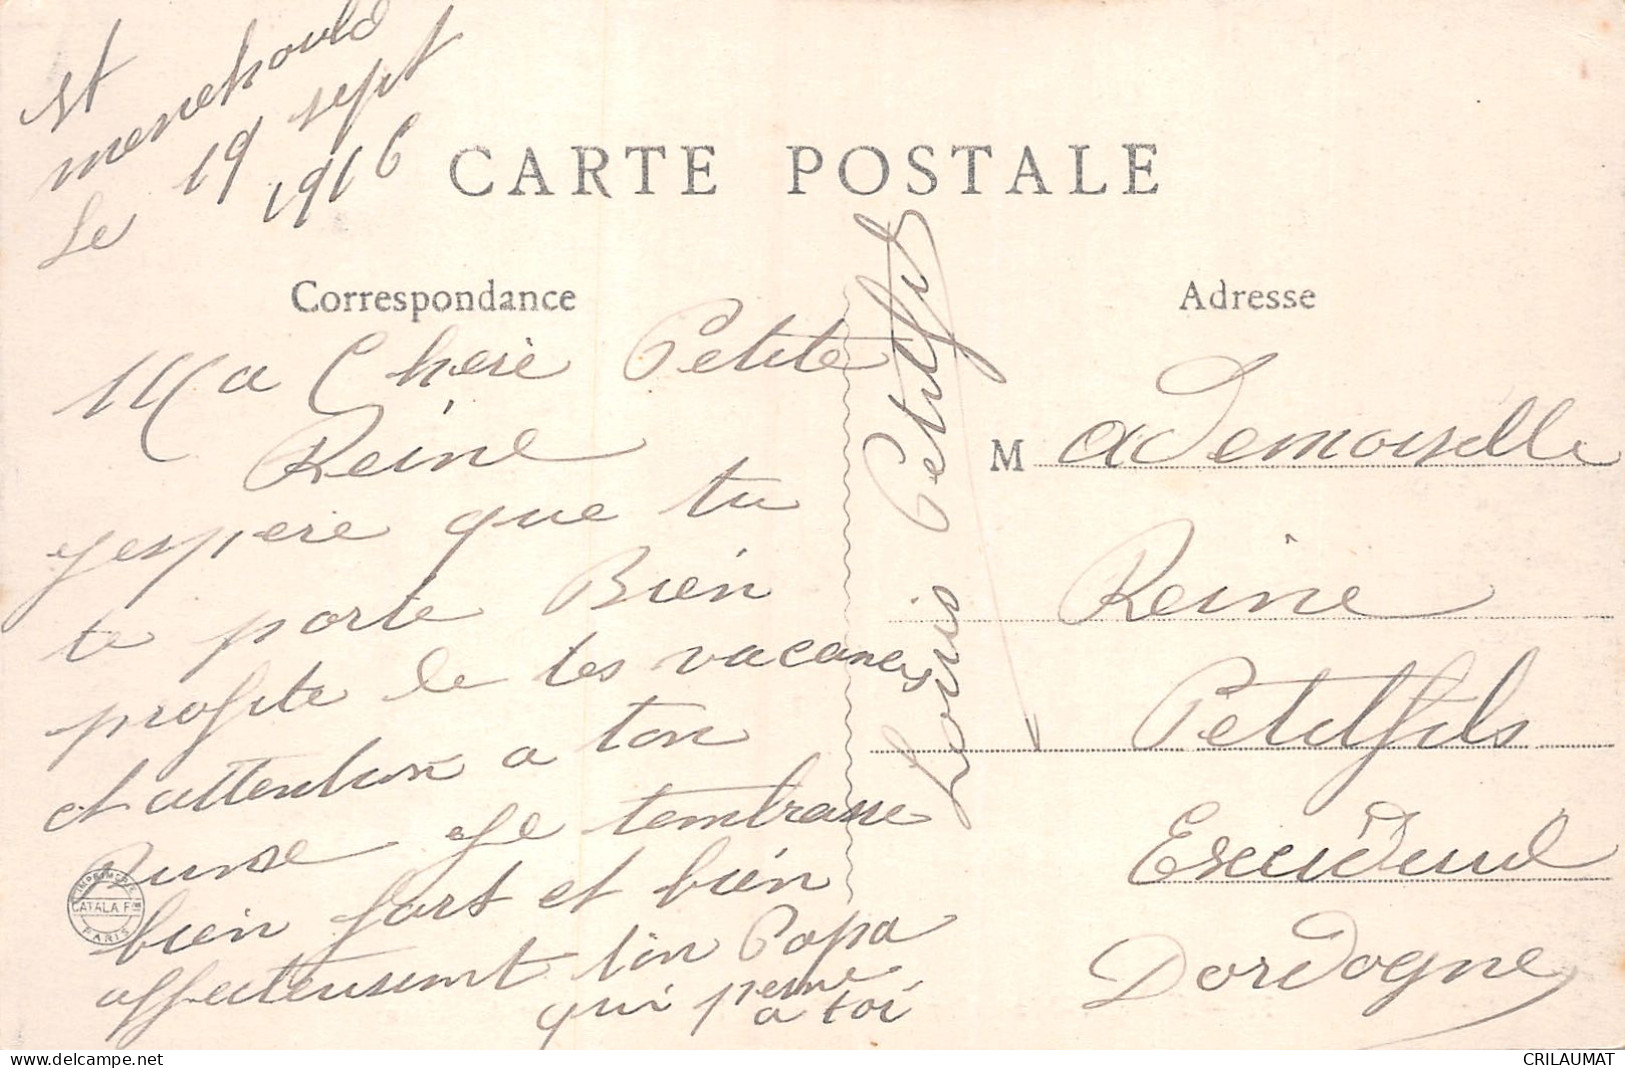 St
menehould
Le 19 sept
1916
CARTE POSTALE
Correspondance
Ma Chere Petite
Reine
j'espere que tu
te porte Bien
profite de tes vacances
et attention a ton
Rume Je tembrasse
bien fort et bien
affecteusement ton Papa
qui pense
a toi
Louis Petitfils
Adresse
M ademoiselle
Reine
Petitfils
Excideuil
Dordogne
IMPRIMERIE
CATALA FRES
PARIS
CRILAUMAT